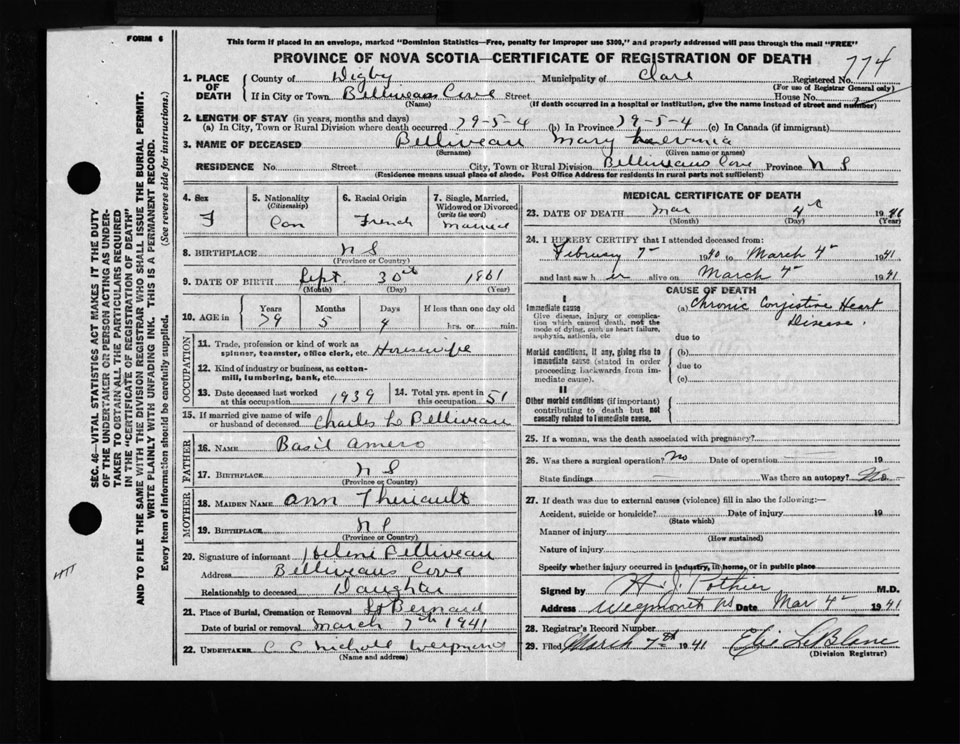 FORM 6
This form if placed in an envelope, marked "Dominion Statistics—Free, penalty for improper use $300," and properly addressed will pass through the mail "FREE"
PROVINCE OF NOVA SCOTIA—CERTIFICATE OF REGISTRATION OF DEATH
774
1. PLACE OF DEATH County of Digby Municipality of Clare Registered No.
(For use of Registrar General only)
If in City or Town Belliveaus Cove Street House No.
(Name) (If death occurred in a hospital or institution, give the name instead of street and number)
2. LENGTH OF STAY (in years, months and days)
(a) In City, Town or Rural Division where death occurred 79-5-4 (b) In Province 79-5-4 (c) In Canada (if immigrant)
3. NAME OF DECEASED Belliveau Mary
(Surname) (Given name or names)
RESIDENCE No. Street City, Town or Rural Division Belliveaus Cove Province N S
(Residence means usual place of abode. Post Office Address for residents in rural parts not sufficient)
4. Sex F
5. Nationality (Citizenship) Can
6. Racial Origin French
7. Single, Married, Widowed or Divorced (write the word) Married
8. BIRTHPLACE N S
(Province or Country)
9. DATE OF BIRTH Sept. 30th 1861
(Month) (Day) (Year)
10. AGE in Years 79 Months 5 Days 4 If less than one day old hrs. or min.
OCCUPATION
11. Trade, profession or kind of work as spinner, teamster, office clerk, etc. Housewife
12. Kind of industry or business, as cotton-mill, lumbering, bank, etc.
13. Date deceased last worked at this occupation 1939 14. Total yrs. spent in this occupation 51
15. If married give name of wife or husband of deceased Charles L Belliveau
FATHER
16. NAME Basil Amero
17. BIRTHPLACE N S
(Province or Country)
MOTHER
18. MAIDEN NAME Ann Theriault
19. BIRTHPLACE N S
(Province or Country)
20. Signature of informant Helene Belliveau
Address Belliveaus Cove
Relationship to deceased Daughter
21. Place of Burial, Cremation or Removal St Bernard
Date of burial or removal March 7th 1941
22. UNDERTAKER C C Nicholl Weymouth
(Name and address)
MEDICAL CERTIFICATE OF DEATH
23. DATE OF DEATH Mar 4 1941
(Month) (Day) (Year)
24. I HEREBY CERTIFY that I attended deceased from:
February 7 1940 to March 4 1941
and last saw h er alive on March 4 1941
CAUSE OF DEATH
I
Immediate cause (a) Chronic Congestive Heart Disease.
Give disease, injury or complication which caused death, not the mode of dying, such as heart failure, asphyxia, asthenia, etc
due to
Morbid conditions, if any, giving rise to immediate cause (stated in order proceeding backwards from immediate cause).
(b)
due to
(c)
II
Other morbid conditions (if important) contributing to death but not causally related to immediate cause.
25. If a woman, was the death associated with pregnancy?
26. Was there a surgical operation? No Date of operation 19
State findings Was there an autopsy? No
27. If death was due to external causes (violence) fill in also the following:—
Accident, suicide or homicide? Date of injury 19
(State which)
Manner of injury
(How sustained)
Nature of injury
Specify whether injury occurred in industry, in home, or in public place
Signed by H. J. Pothier M.D.
Address Weymouth NS Date Mar 4 1941
28. Registrar's Record Number
29. Filed March 7th 1941 Elie LeBlanc
(Division Registrar)
SEC. 46—VITAL STATISTICS ACT MAKES IT THE DUTY
OF THE UNDERTAKER OR PERSON ACTING AS UNDER-
TAKER TO OBTAIN ALL THE PARTICULARS REQUIRED
IN THE "CERTIFICATE OF REGISTRATION OF DEATH"
AND TO FILE THE SAME WITH THE DIVISION REGISTRAR WHO SHALL ISSUE THE BURIAL PERMIT.
WRITE PLAINLY WITH UNFADING INK. THIS IS A PERMANENT RECORD.
Every item of information should be carefully supplied. (See reverse side for instructions.)